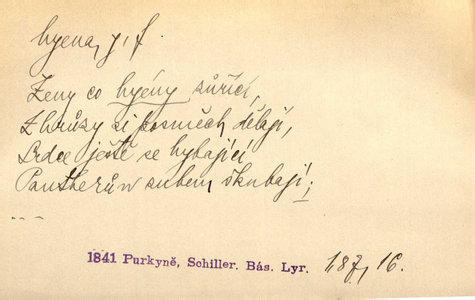 hyena, j, f.
Ženy co hyény zůřící,
Z hrůzy si posměch dělají,
Srdce ještě se hybající
Pantherůw zubem škubají;
---
1841 Purkyně, Schiller. Bás. Lyr. 187, 16.